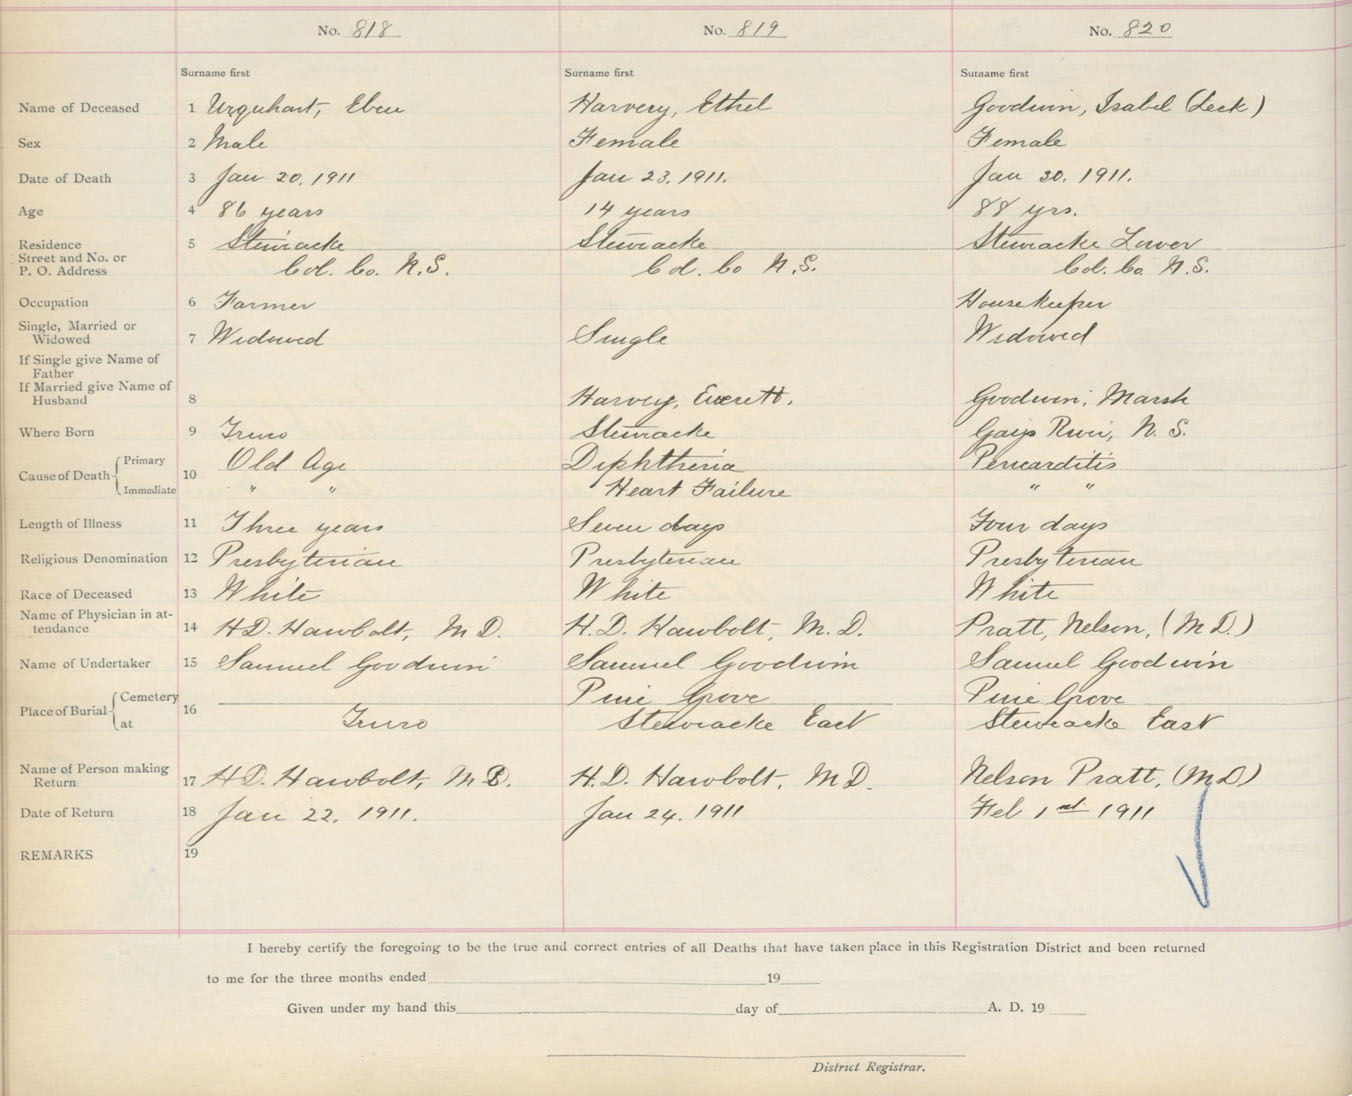 No. 818 No. 819 No. 820
Surname first Surname first Surname first
Name of Deceased 1 Urquhart, Eben Harvery, Ethel Goodwin, Isabel (Leck)
Sex 2 Male Female Female
Date of Death 3 Jan 20, 1911 Jan 23, 1911. Jan 30, 1911.
Age 4 86 years 14 years 88 yrs.
Residence 5 Stewiacke Stewiacke Stewiacke Lower
Street and No. or
P. O. Address Col. Co. N.S. Col. Co N.S. Col. Co. N.S.
Occupation 6 Farmer Housekeeper
Single, Married or
Widowed 7 Widowed Single Widowed
If Single give Name of
Father
If Married give Name of
Husband 8 Harvey, Everett, Goodwin, Marsh
Where Born 9 Truro Stewiacke Gays River, N. S.
Cause of Death Primary 10 Old Age Diphtheria Pericarditis
Immediate " " Heart Failure " "
Length of Illness 11 Three years Seven days Four days
Religious Denomination 12 Presbyterian Presbyterian Presbyterian
Race of Deceased 13 White White White
Name of Physician in at-
tendance 14 H.D. Hawbolt, M D. H.D. Hawbolt, M. D. Pratt, Nelson, (M D.)
Name of Undertaker 15 Samuel Goodwin Samuel Goodwin Samuel Goodwin
Place of Burial Cemetery 16 Pine Grove Pine Grove
at Truro Stewiacke East Stewiacke East
Name of Person making
Return 17 H.D. Hawbolt, M D. H.D. Hawbolt, M D. Nelson Pratt, (M D)
Date of Return 18 Jan 22, 1911. Jan 24, 1911 Feb 1st 1911
REMARKS 19
I hereby certify the foregoing to be the true and correct entries of all Deaths that have taken place in this Registration District and been returned
to me for the three months ended 19
Given under my hand this day of A. D. 19
District Registrar.